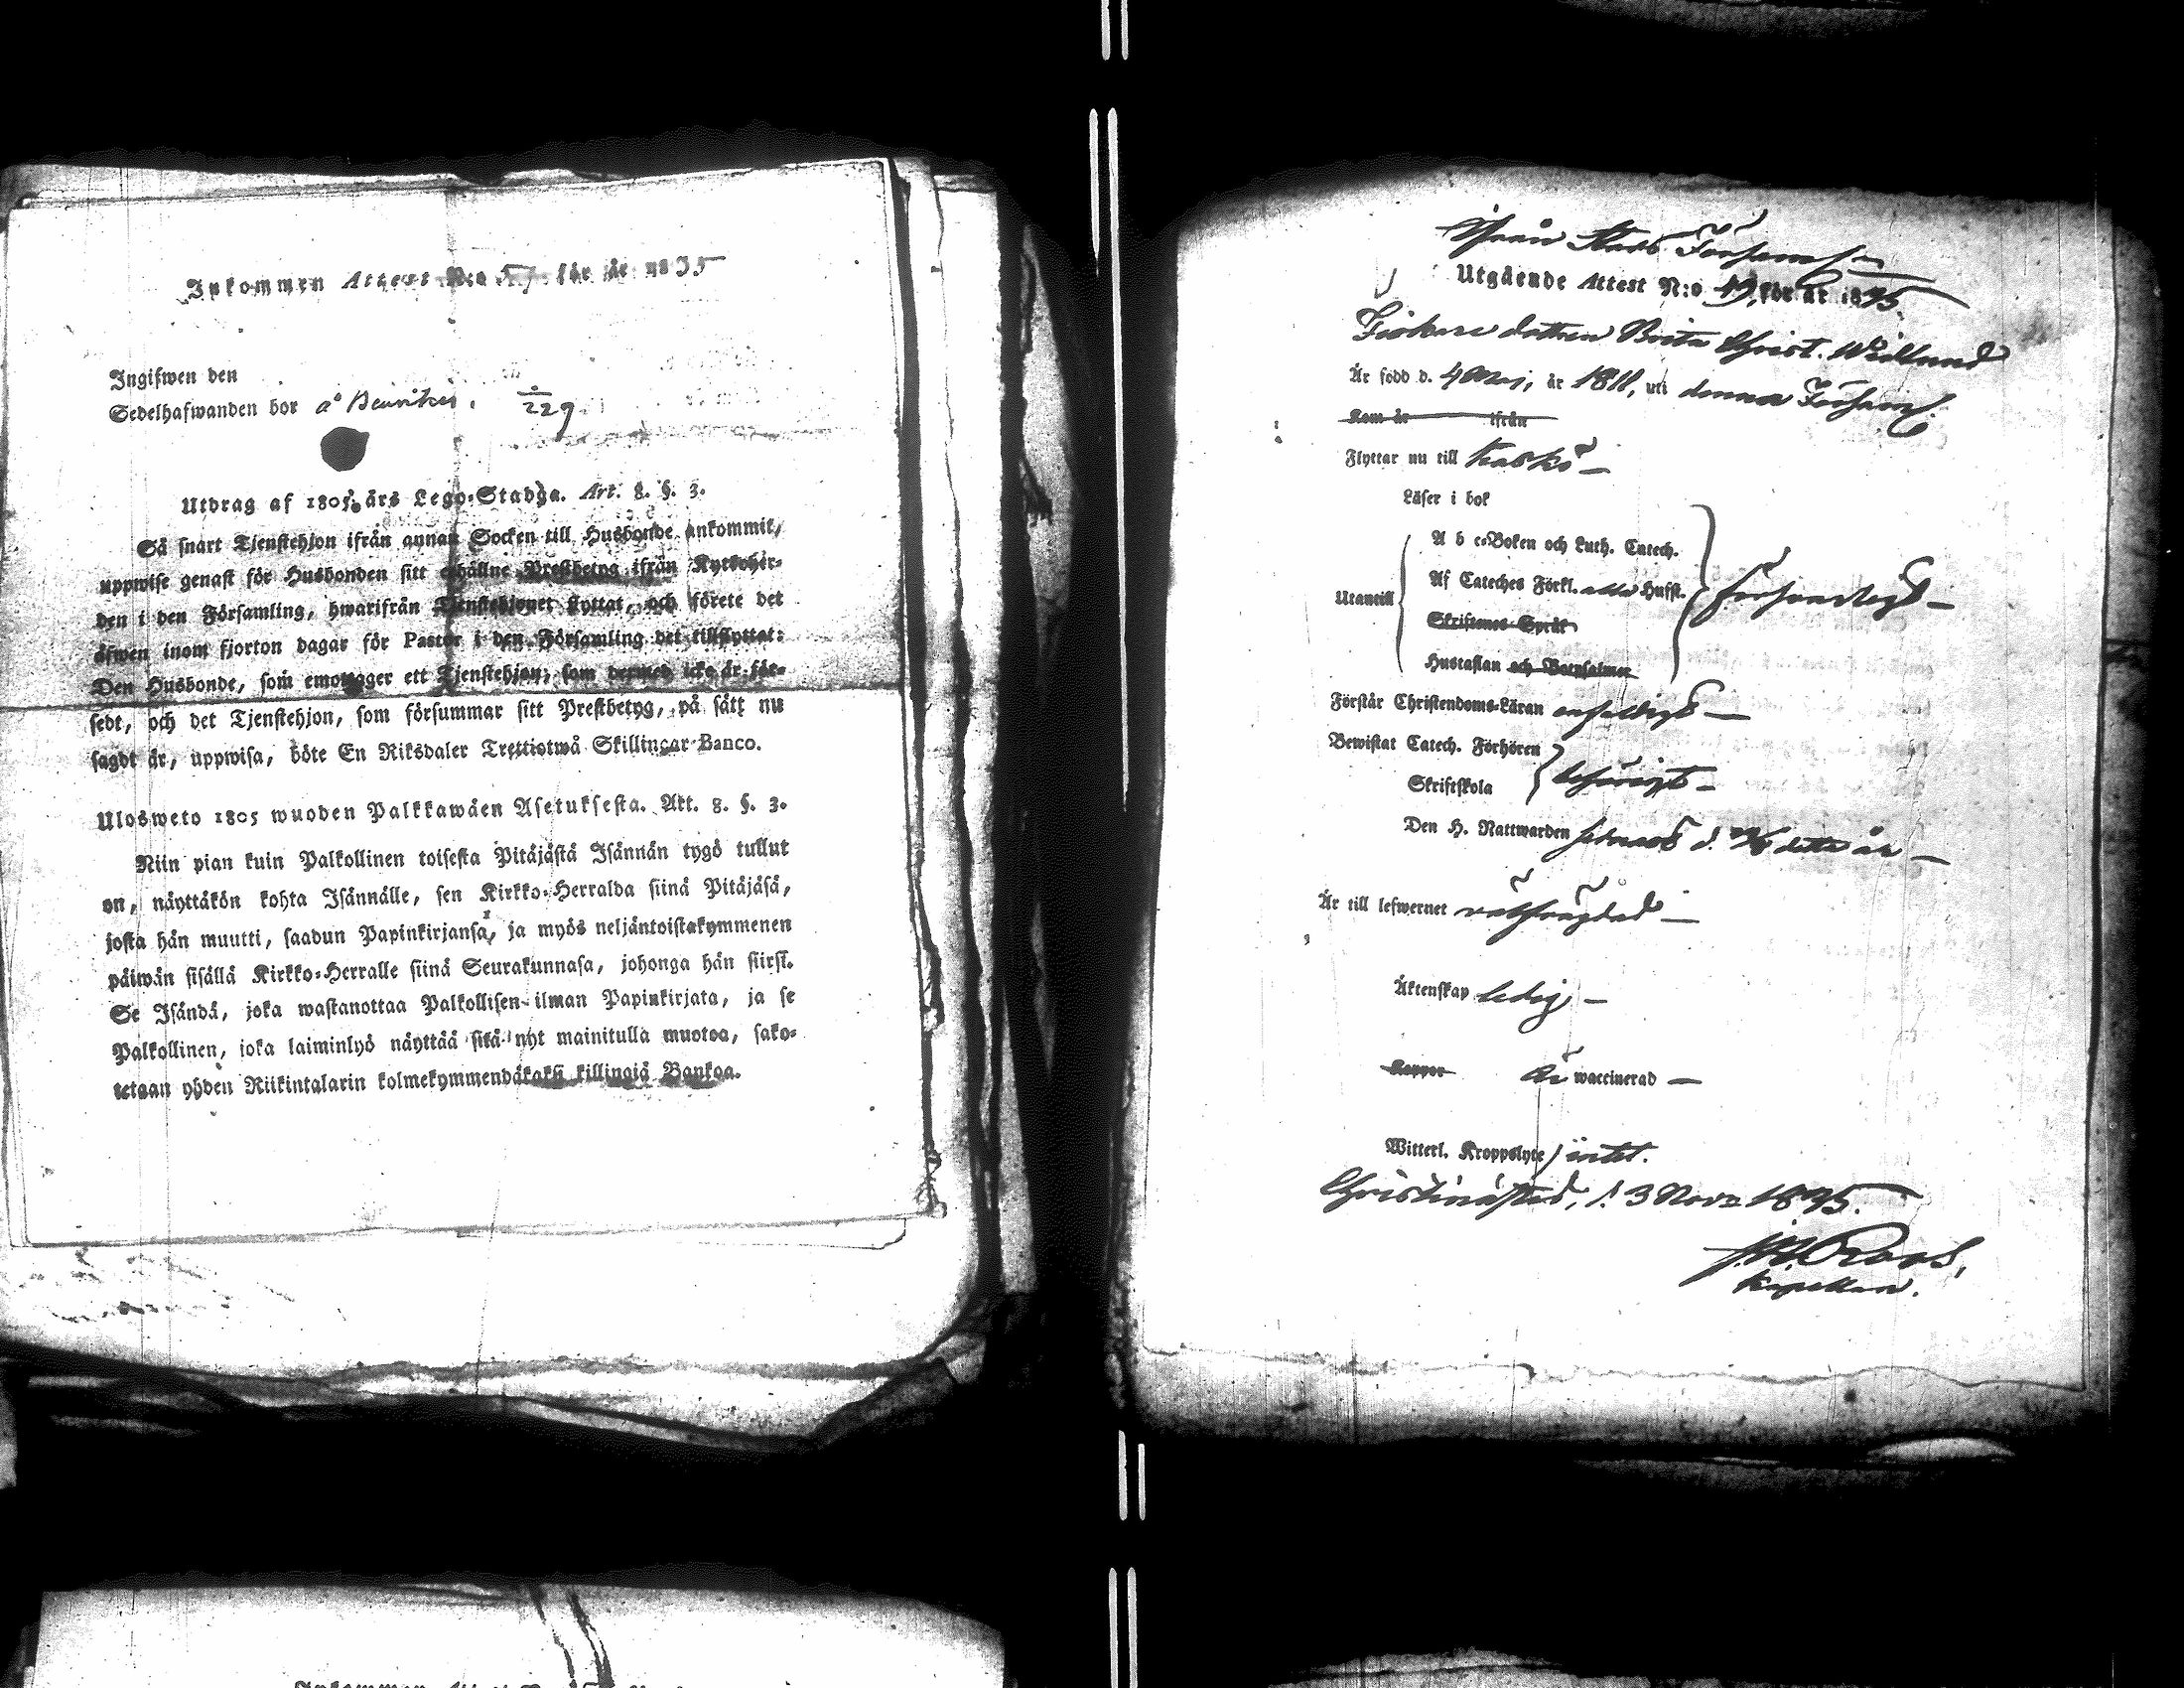 Inkommen Attest N:o 57 för år 1835
Ingifwen den
Sedelhafwanden bor å
229
Utdrag af 1805 års Lego-Stadga. Art. 8. §. 3.
Så snart Tjenstehjon ifrån annan Socken till Husbonde ankommit,
uppwise genast för Husbonden sitt erhållne Prestbetyg ifrån Kyrkoher-
den i den Församling, hwarifrån Tjenstehjonet flyttat, och förete det
äfwen inom fjorton dagar för Pastor i den Församling det tillflyttat:
Den Husbonde, som emottager ett Tjenstehjon, som dermed icke är för-
sedt, och det Tjenstehjon, som försummar sitt Prestbetyg, på sätt nu
sagdt är, uppwisa, böte En Riksdaler Trettiotwå Skillingar Banco.
Ulosweto 1805 wuoden Palkkawäen Asetuksesta. Art. 8. §. 3.
Niin pian kuin Palkollinen toisesta Pitäjästä Isännän tygö tullut
on, näyttäkön kohta Isännälle, sen Kirkko-Herralda siinä Pitäjäsä,
josta hän muutti, saadun Papinkirjansa, ja myös neljäntoistakymmenen
päiwän sisällä Kirkko-Herralle siinä Seurakunnasa, johonga hän siirsi.
Se Isändä, joka wastanottaa Palkollisen ilman Papinkirjata, ja se
Palkollinen, joka laiminlyö näyttää sitä nyt mainitulla muotoa, sako-
tetaan yhden Riikintalarin kolmekymmendäkaksi killingiä Bankoa.
Ifrån Stads Församl:n
Utgående Attest N:o 19, för år 1835.
Fiskare dottren Brita Christ. Wedlund
Är född d. 4 Maj, år 1811, uti denna Församl.
Kom år ifrån
Flyttar nu till Kaskö —
Läser i bok
A b c-Boken och Luth. Catech.
Utantill Af Cateches Förkl. alla Hufst. försvarligt —
Skriftenes Språk
Hustaflan och Botpsalmer
Förstår Christendoms-Läran enfaldigt —
Bewistat Catech. Förhören
Skriftskola behörigt —
Den H. Nattwarden detta år —
Är till lefwernet välfrägdad —
Äktenskap ledig, —
Koppor Är waccinerad —
Witterl. Kroppslyte intet.
Christinæstad, d. 3 Nov. 1835.
Kapellan.
Inkommen